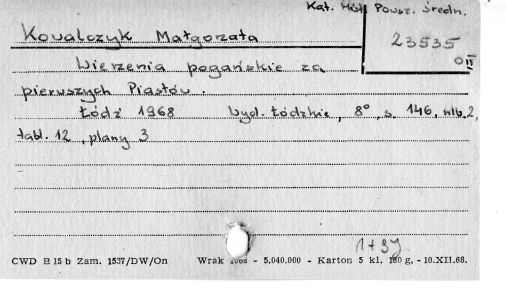 Kat. Hist. Powsz. Średn.
Kowalczyk Małgorzata
23535
OII
Wierzenia pogańskie za
pierwszych Piastów.
Łódź 1968 Wyd. Łódzkie, 8°, s. 146, nlb. 2,
tabl. 12, plany 3
1+39
CWD B 15 b Zam. 1537/DW/On Wrak - 5,040.000 - Karton 5 kl. 180 g, - 10.XII.68.